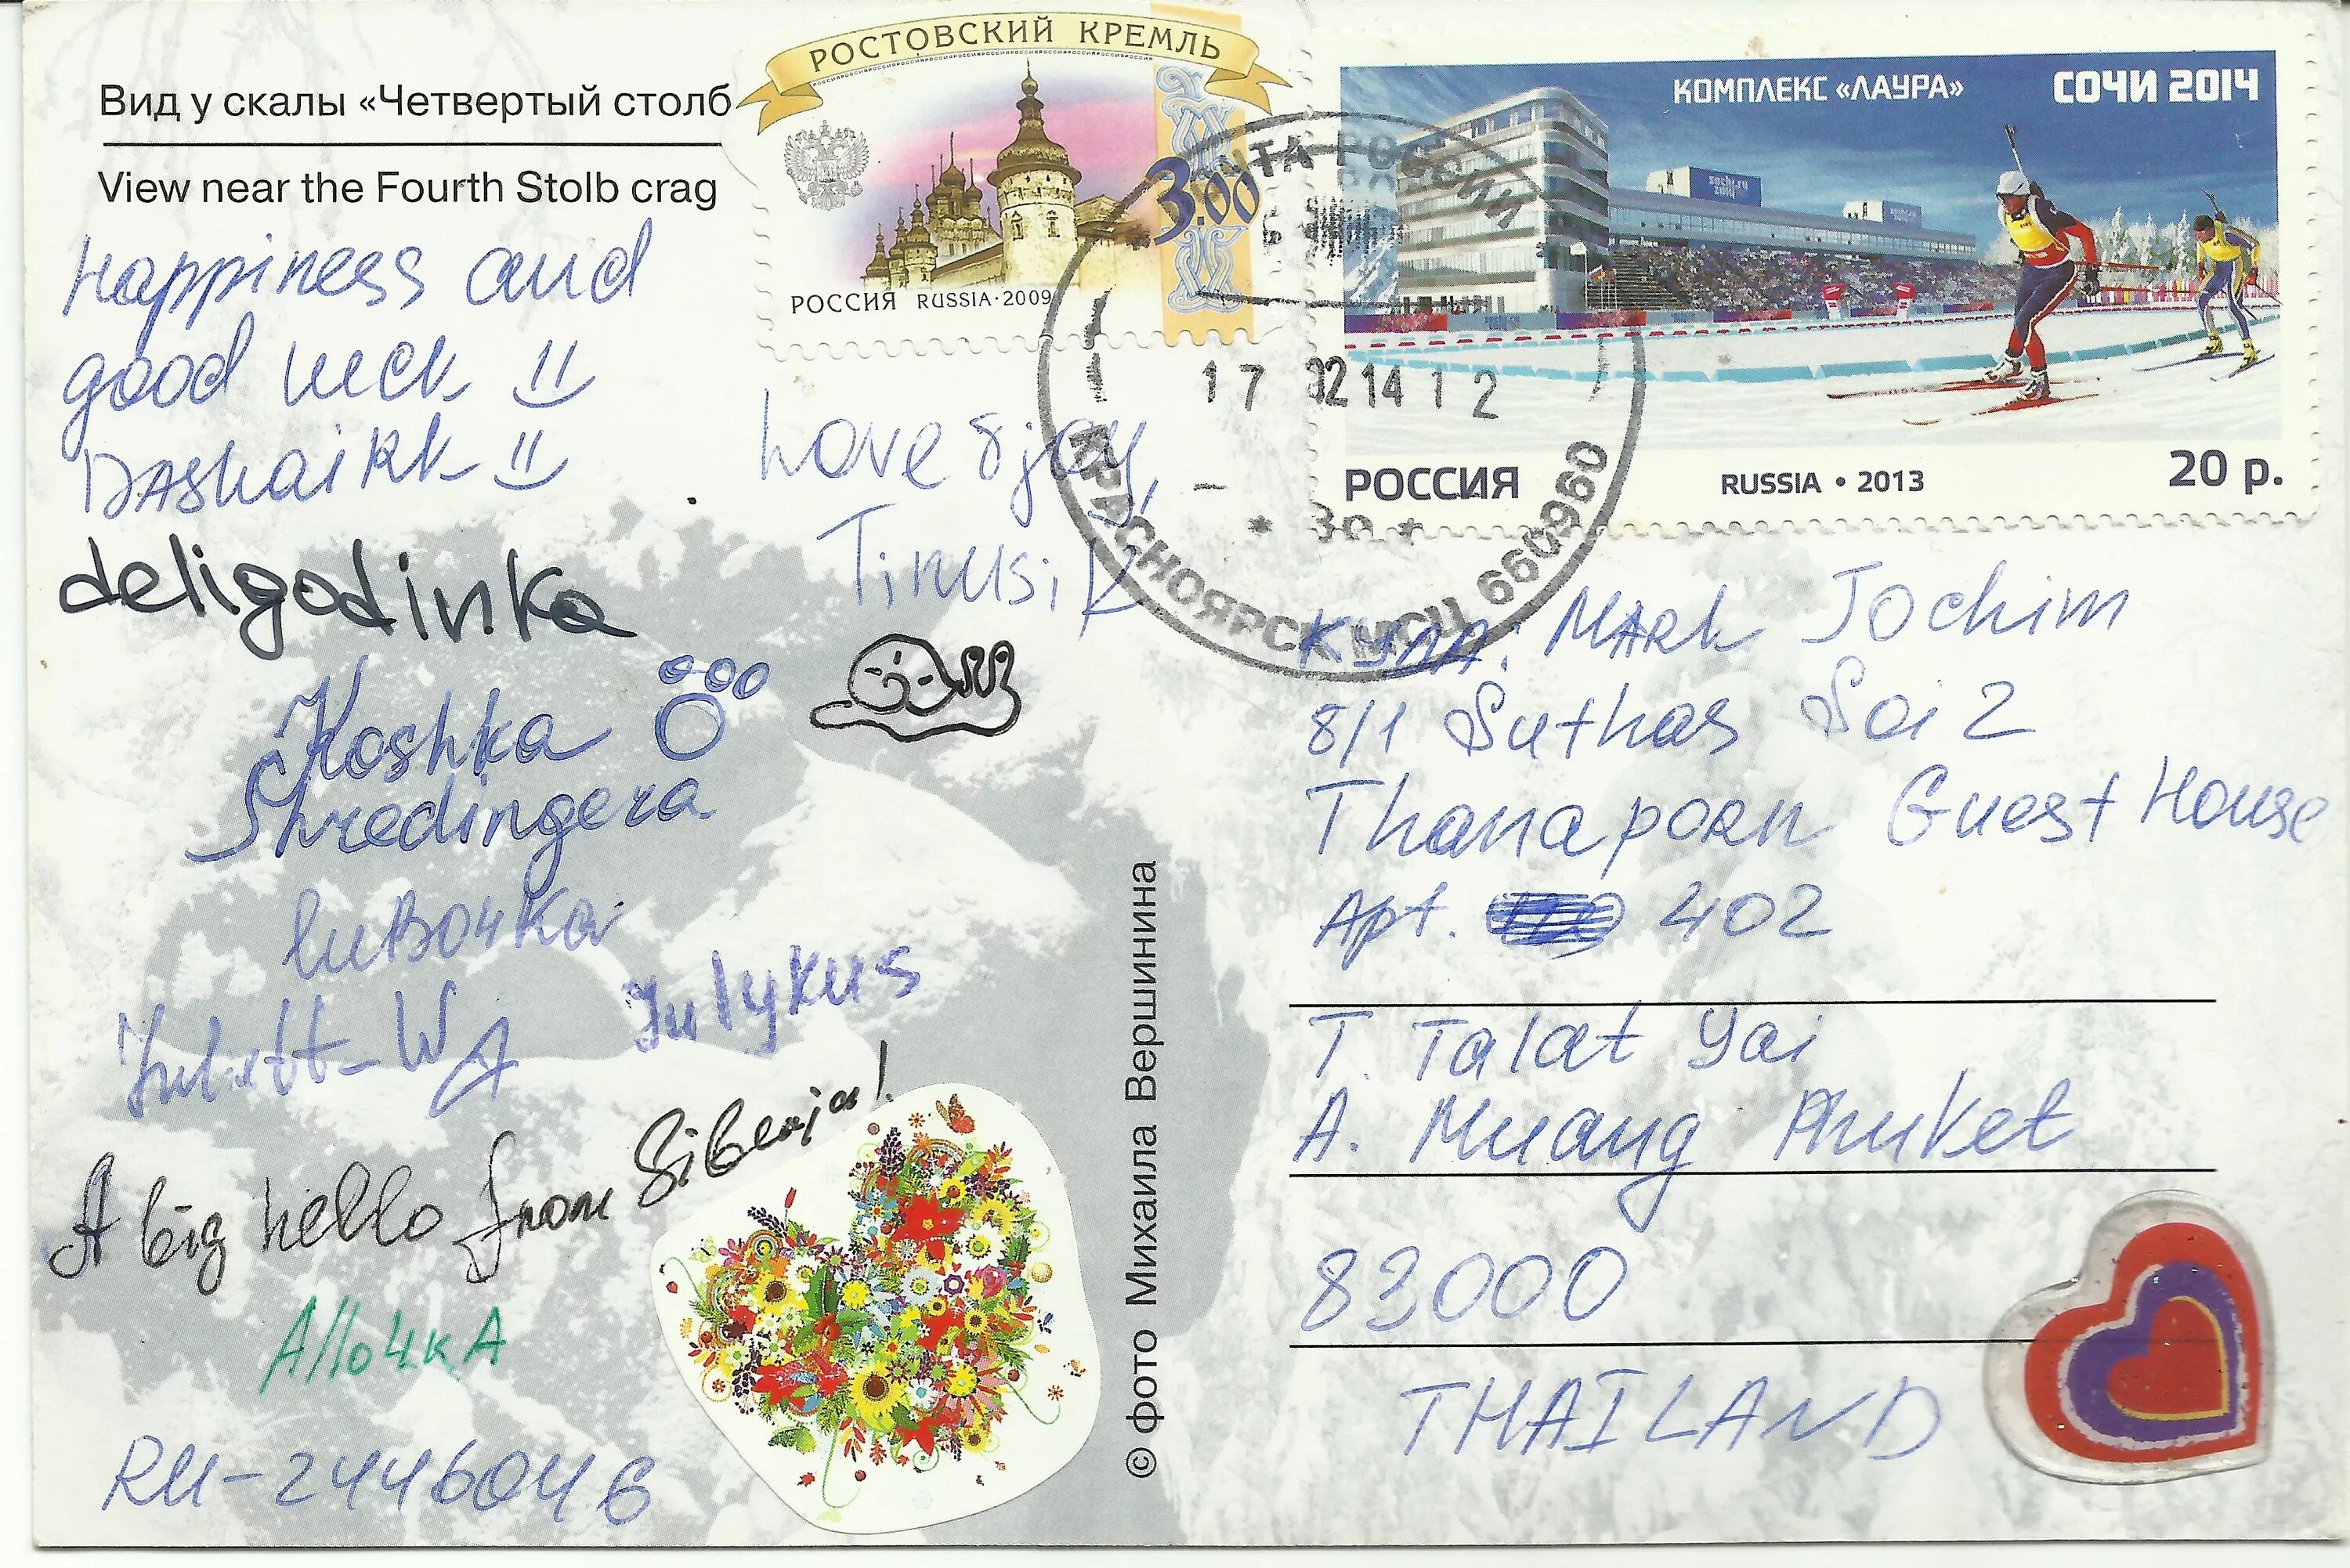 Вид у скалы «Четвертый столб
View near the Fourth Stolb crag
Happiness and
good luck
DAshaiRk
Love & joy,
Tinusik
deligodinka
Koshka
Shredingera
luBo4ka
Juliett-WA
Julykus
A big hello from Siberja!
Allo4kA
RU-2446046
© фото Михаила Вершинина
РОСТОВСКИЙ КРЕМЛЬ
3.00
РОССИЯ RUSSIA·2009
КОМПЛЕКС «ЛАУРА»
СОЧИ 2014
sochi.ru
2014
РОССИЯ
RUSSIA • 2013
20 р.
ПОЧТА РОССИИ
17 02 14 12
* 30 *
КРАСНОЯРСК МСЦ 660960
Куда: MARk Jochim
8/1 Suthas Soi 2
Thanaporn Guest House
Apt. 402
T. Talat Yai
A. Muang Phuket
83000
THAILAND